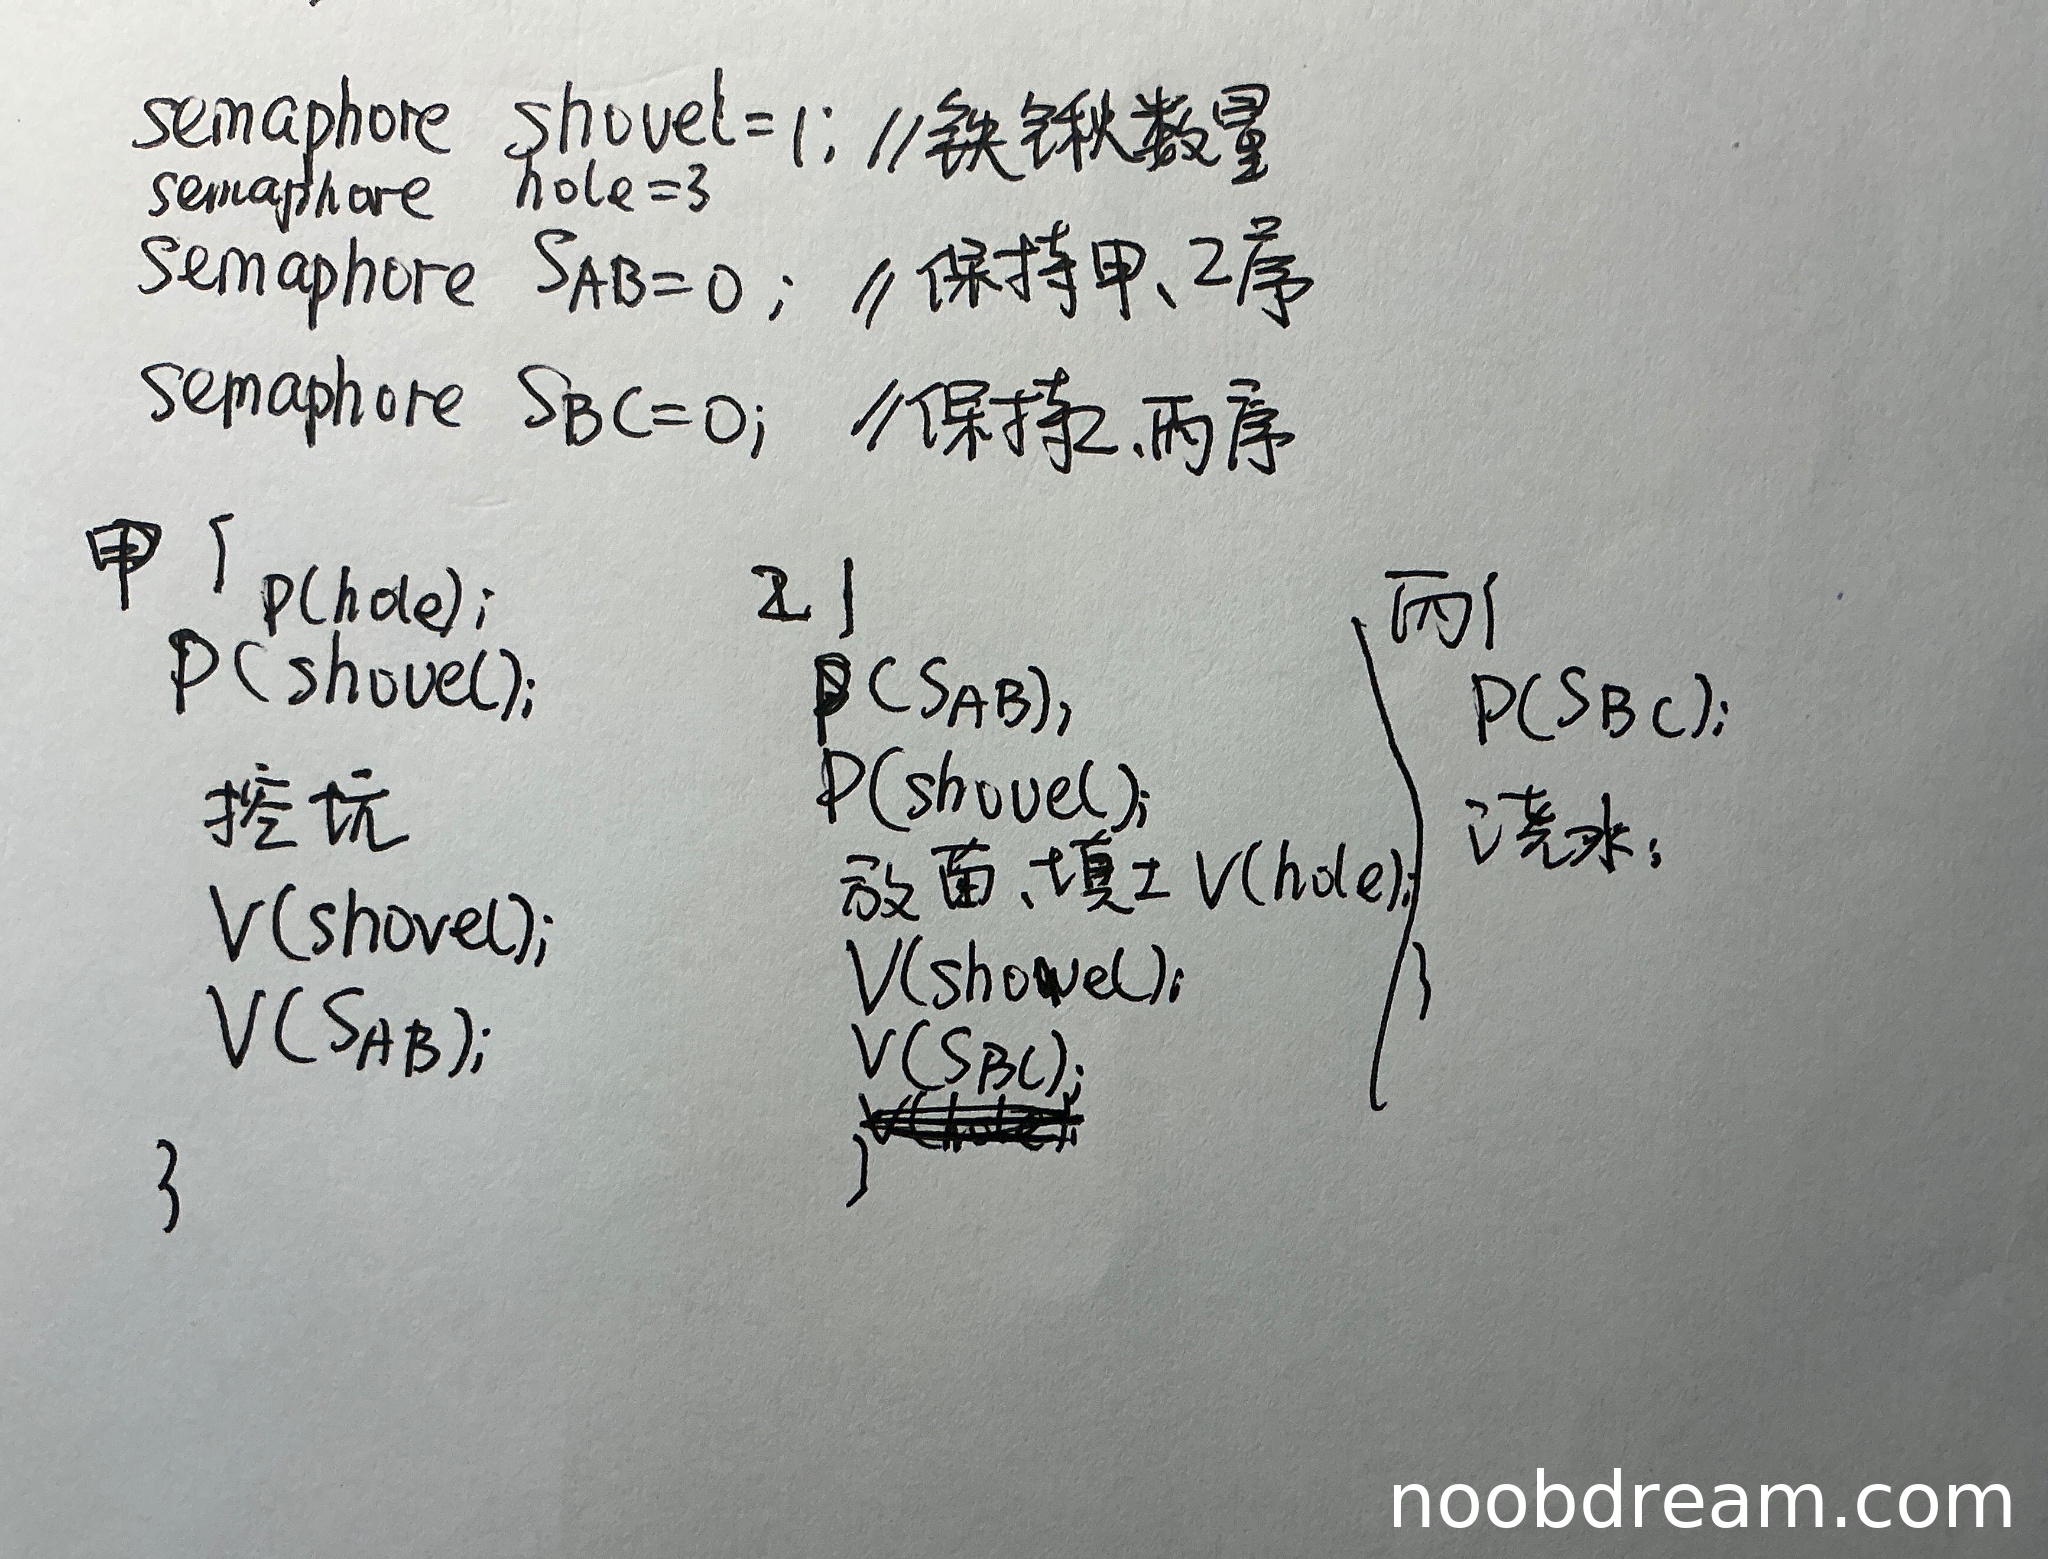 semaphore shovel=1; //铁锹数量
semaphore hole=3
semaphore SAB=0; //保持甲、乙序
semaphore SBC=0; //保持乙、丙序
甲{
P(hole);
P(shovel);
挖坑
V(shovel);
V(SAB);
}
乙{
P(SAB);
P(shovel);
放苗、填土 V(hole);
V(shovel);
V(SBC);
}
丙{
P(SBC);
浇水;
}
noobdream.com